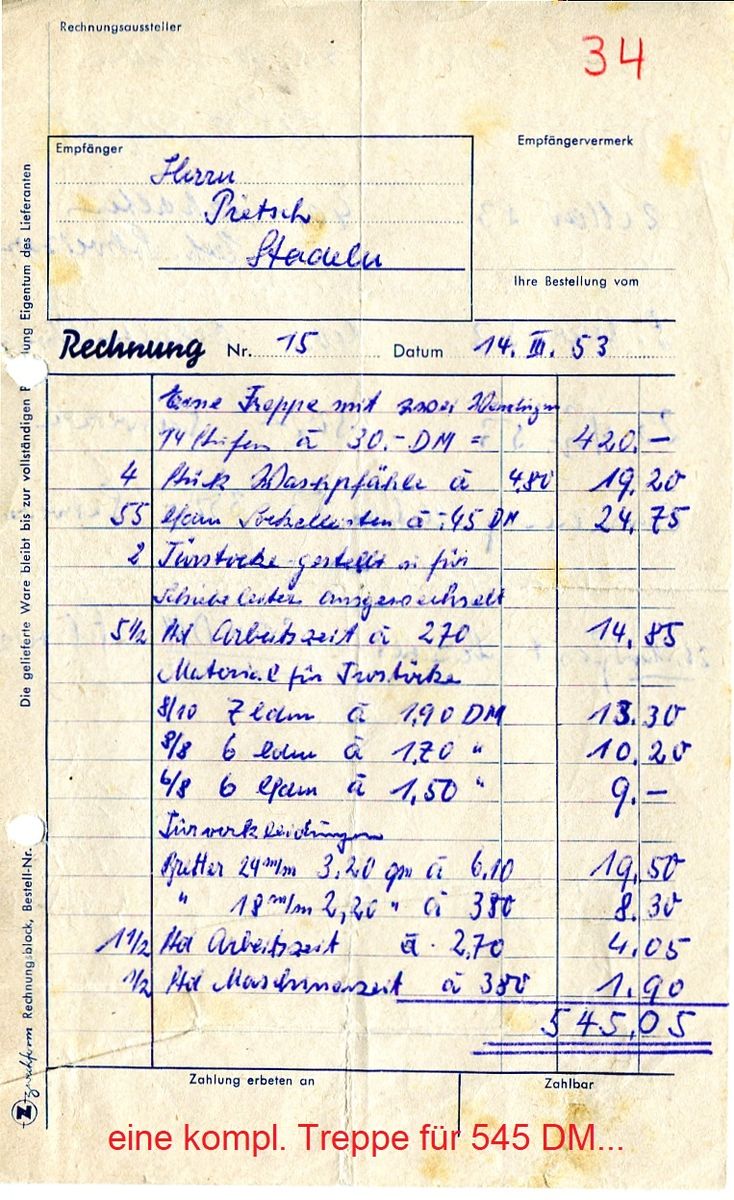 Rechnungsaussteller
34
Empfängervermerk
Empfänger
Herrn
Pietsch
Stadeln
Ihre Bestellung vom
Rechnung Nr. 15 Datum 14. III. 53
Eine Treppe mit zwei
14 Stufen á 30.- DM = 420.—
4 Stük Waschpfähle á 4,80 19.20
55 lfdm Sockelleisten á -.45 DM 24.75
2 Türstöcke gestellt u für
ausgewechselt
5 1/2 Std Arbeitszeit á 270 14.85
Material für Türstöcke
8/10 7 lfdm á 1,90 DM 13.30
8/8 6 lfdm á 1,70 " 10.20
6/8 6 lfdm á 1,50 " 9.—
Türverkleidungen
Bretter 24 m/m 3,20 qm á 6.10 19.50
" 18 m/m 2,20 " á 380 8.30
1 1/2 Std Arbeitszeit á 2,70 4.05
1/2 Std Maschinenzeit á 380 1.90
545,05
Zahlung erbeten an
Zahlbar
eine kompl. Treppe für 545 DM...
Die gelieferte Ware bleibt bis zur vollständigen Eigentum des Lieferanten
Z zweckform Rechnungsblock, Bestell-Nr.